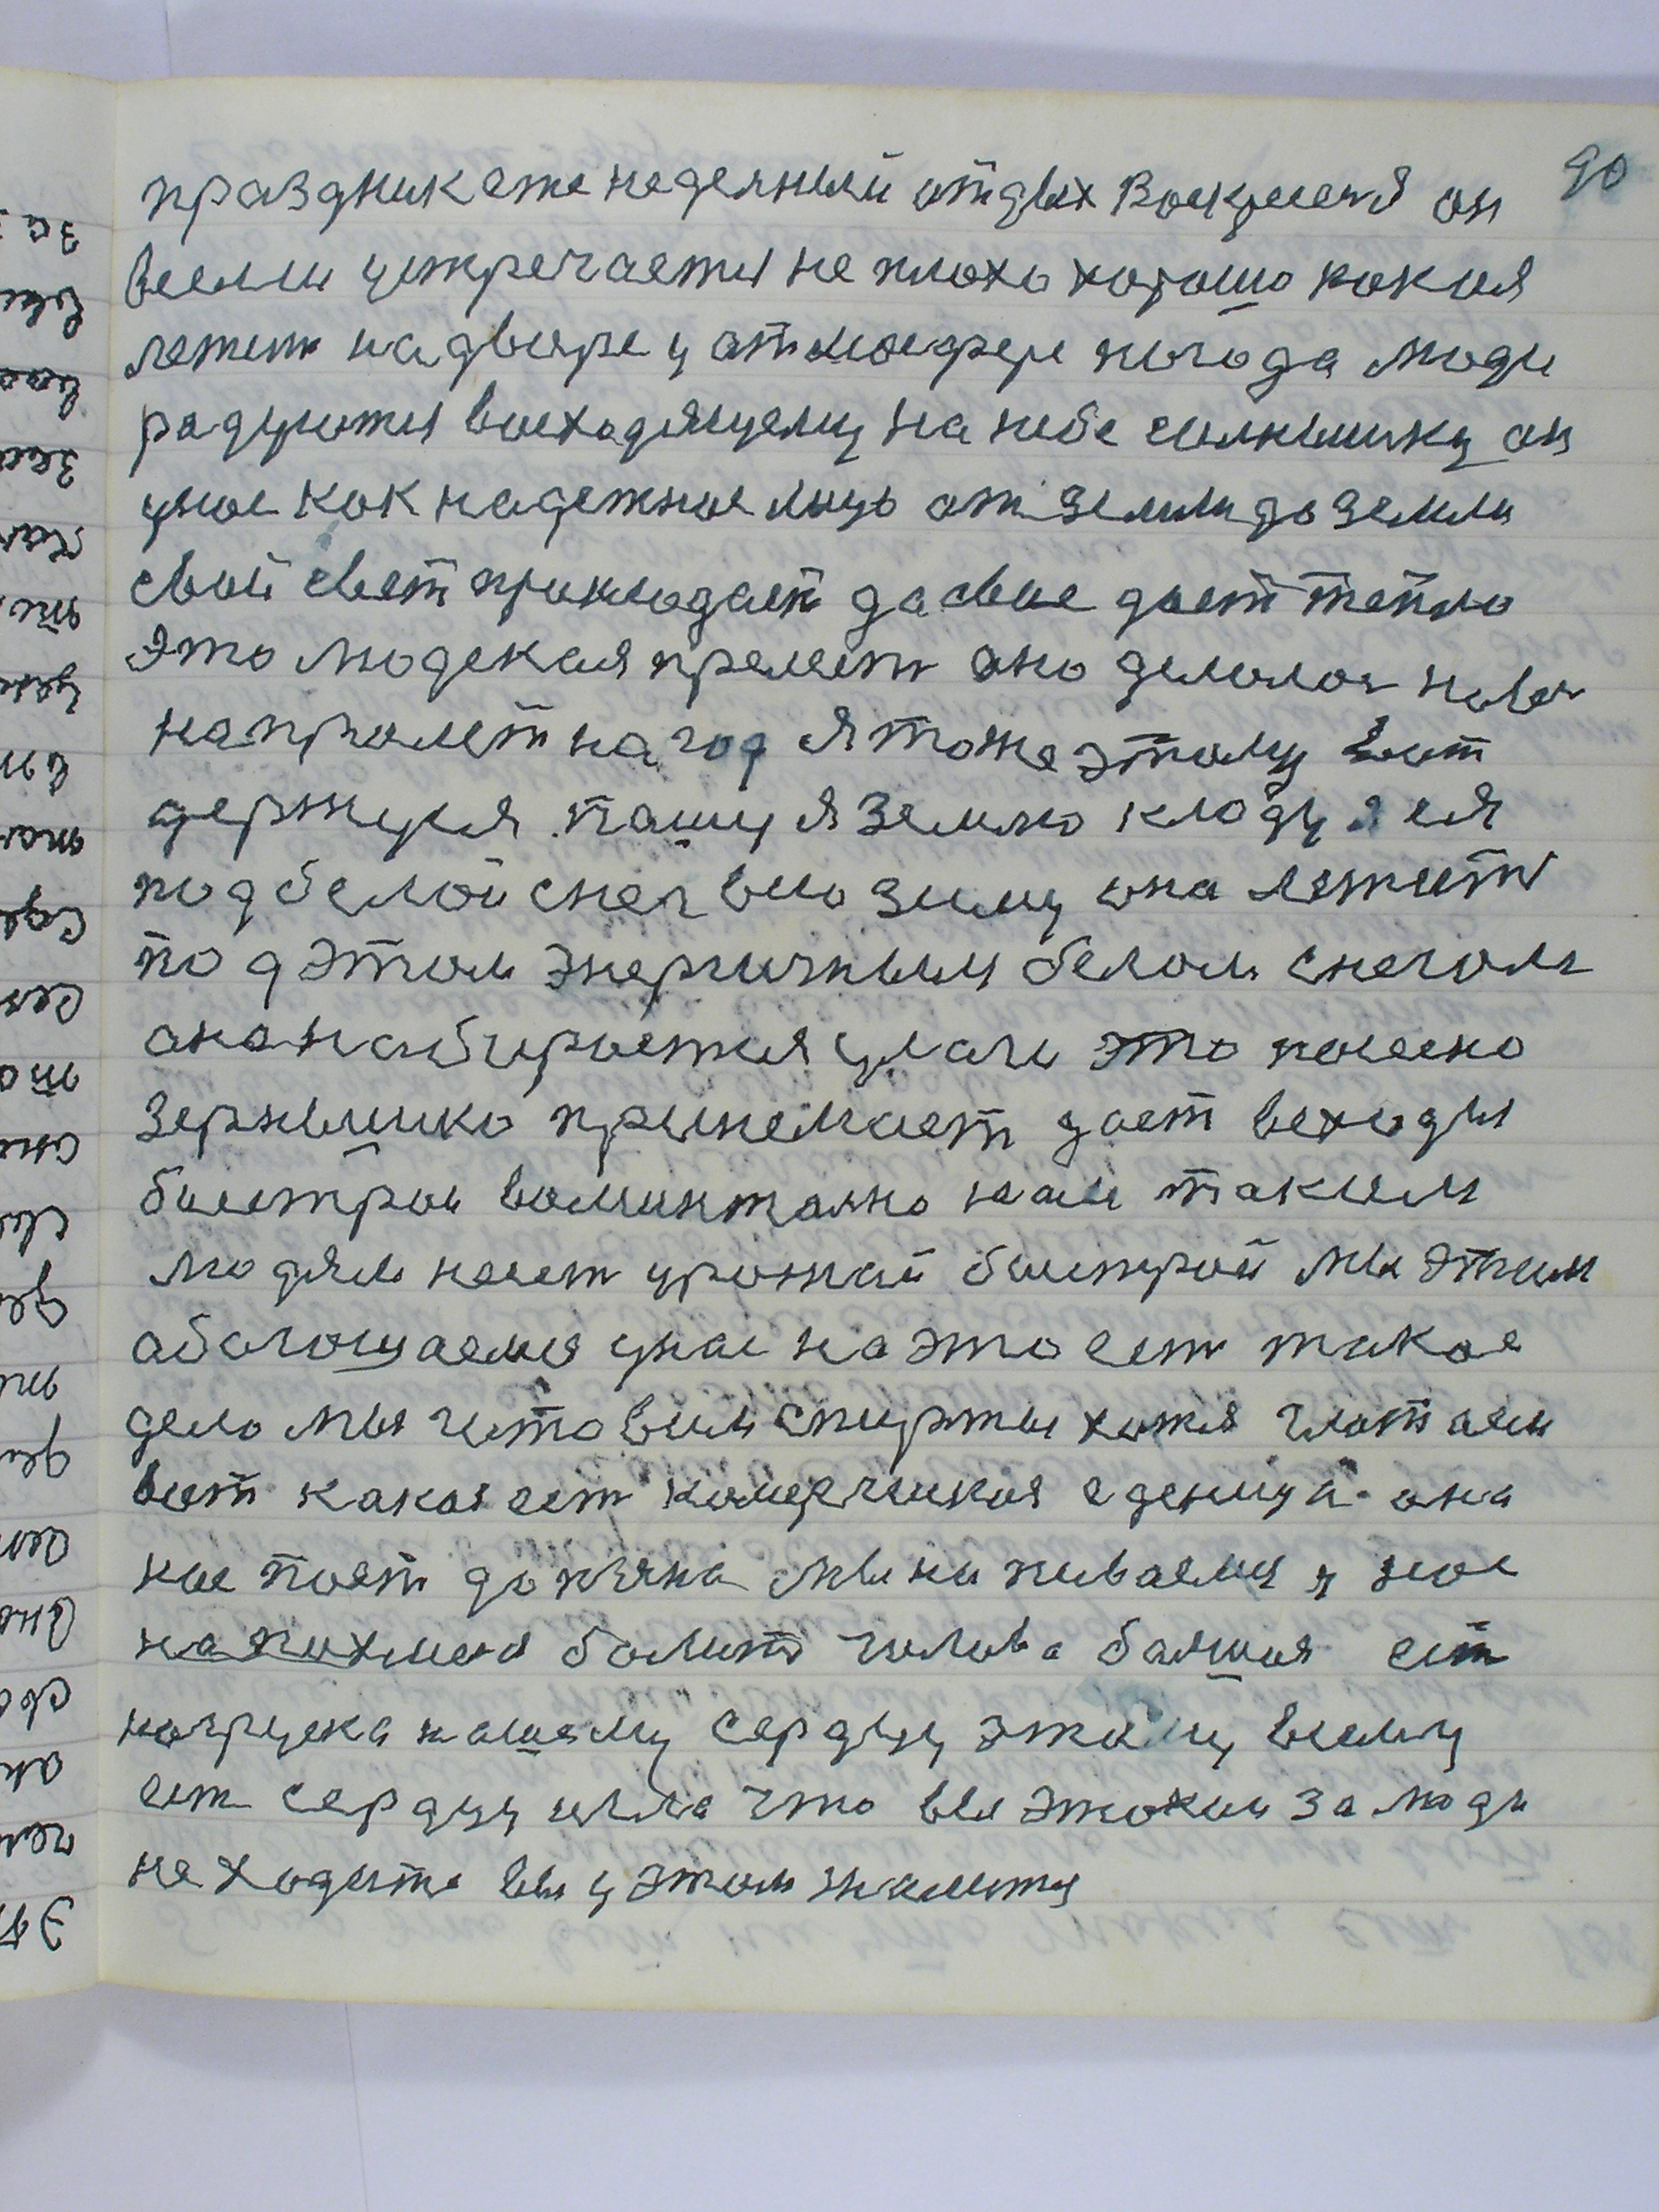 90
праздник еженеделный отдых Воскресеня он
всеми устречается не плохо хорошо какая
лежит на дворе у атмосфере погода люди
радуются восходящему на небе солнышку он
у нас как надежное лицо от земли до земли
свой свет прикладает да свае дает тепло
Это людская прелест оно делалос
на пролет на год Я тоже этому вот
держуся пашу я Землю кладу я ея
под белой снег всю зиму она лежить
под этом энергичным белом снегом
она набирается улаги это посеено
зернышко принемает дает всходы
быстрои воминтално нам таким
людям несет урожай быстрой мы этим
абагощаемся у нас на это ест такое
дело мы готовим спирты хотя глотаем
вот какая ест комерчиская еденица она
нас поят до пяна мы напиваемся у нас
на похмеля болить голова балшая ест
нагрузка нашему сердцу этому всему
ест сердцу что вы этокии за люди
не ходите вы у этом